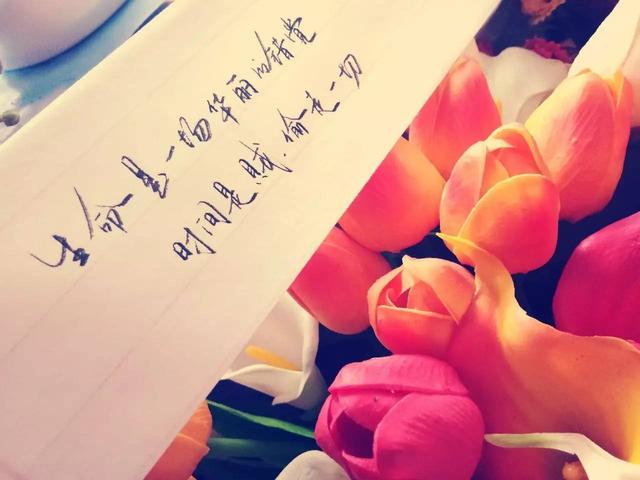 生命是一场华丽的错觉
时间是贼.偷走一切